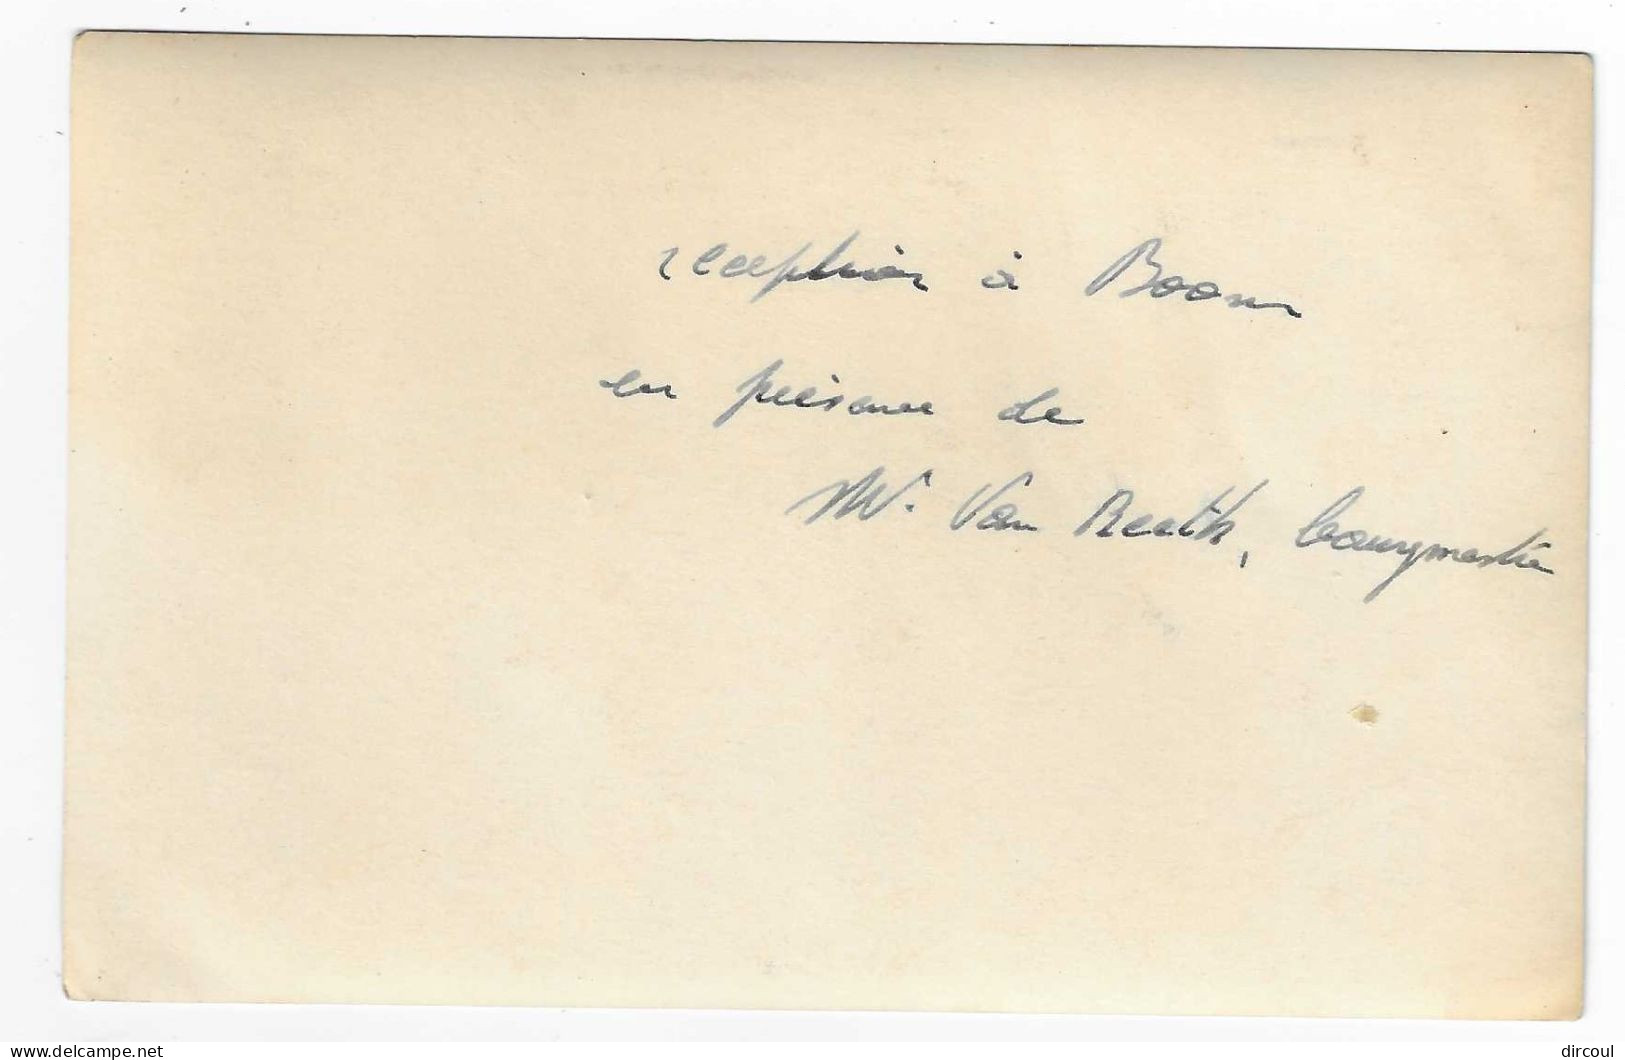 reception à Boom
en présence de
Mr. Van Reeth, bourgmestre
www.delcampe.net
dircoul